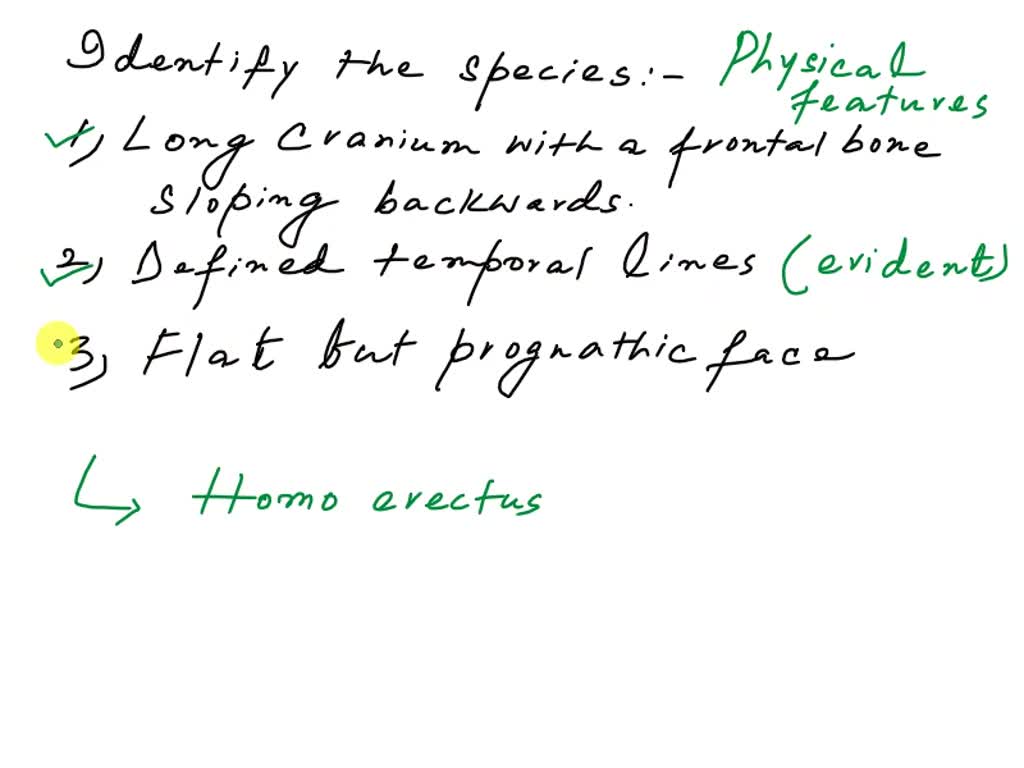 Identify the species:- Physical
features
1) Long Cranium with a frontal bone
sloping backwards.
2) Defined temporal lines (evident)
3) Flat but prognathic face
Homo erectus